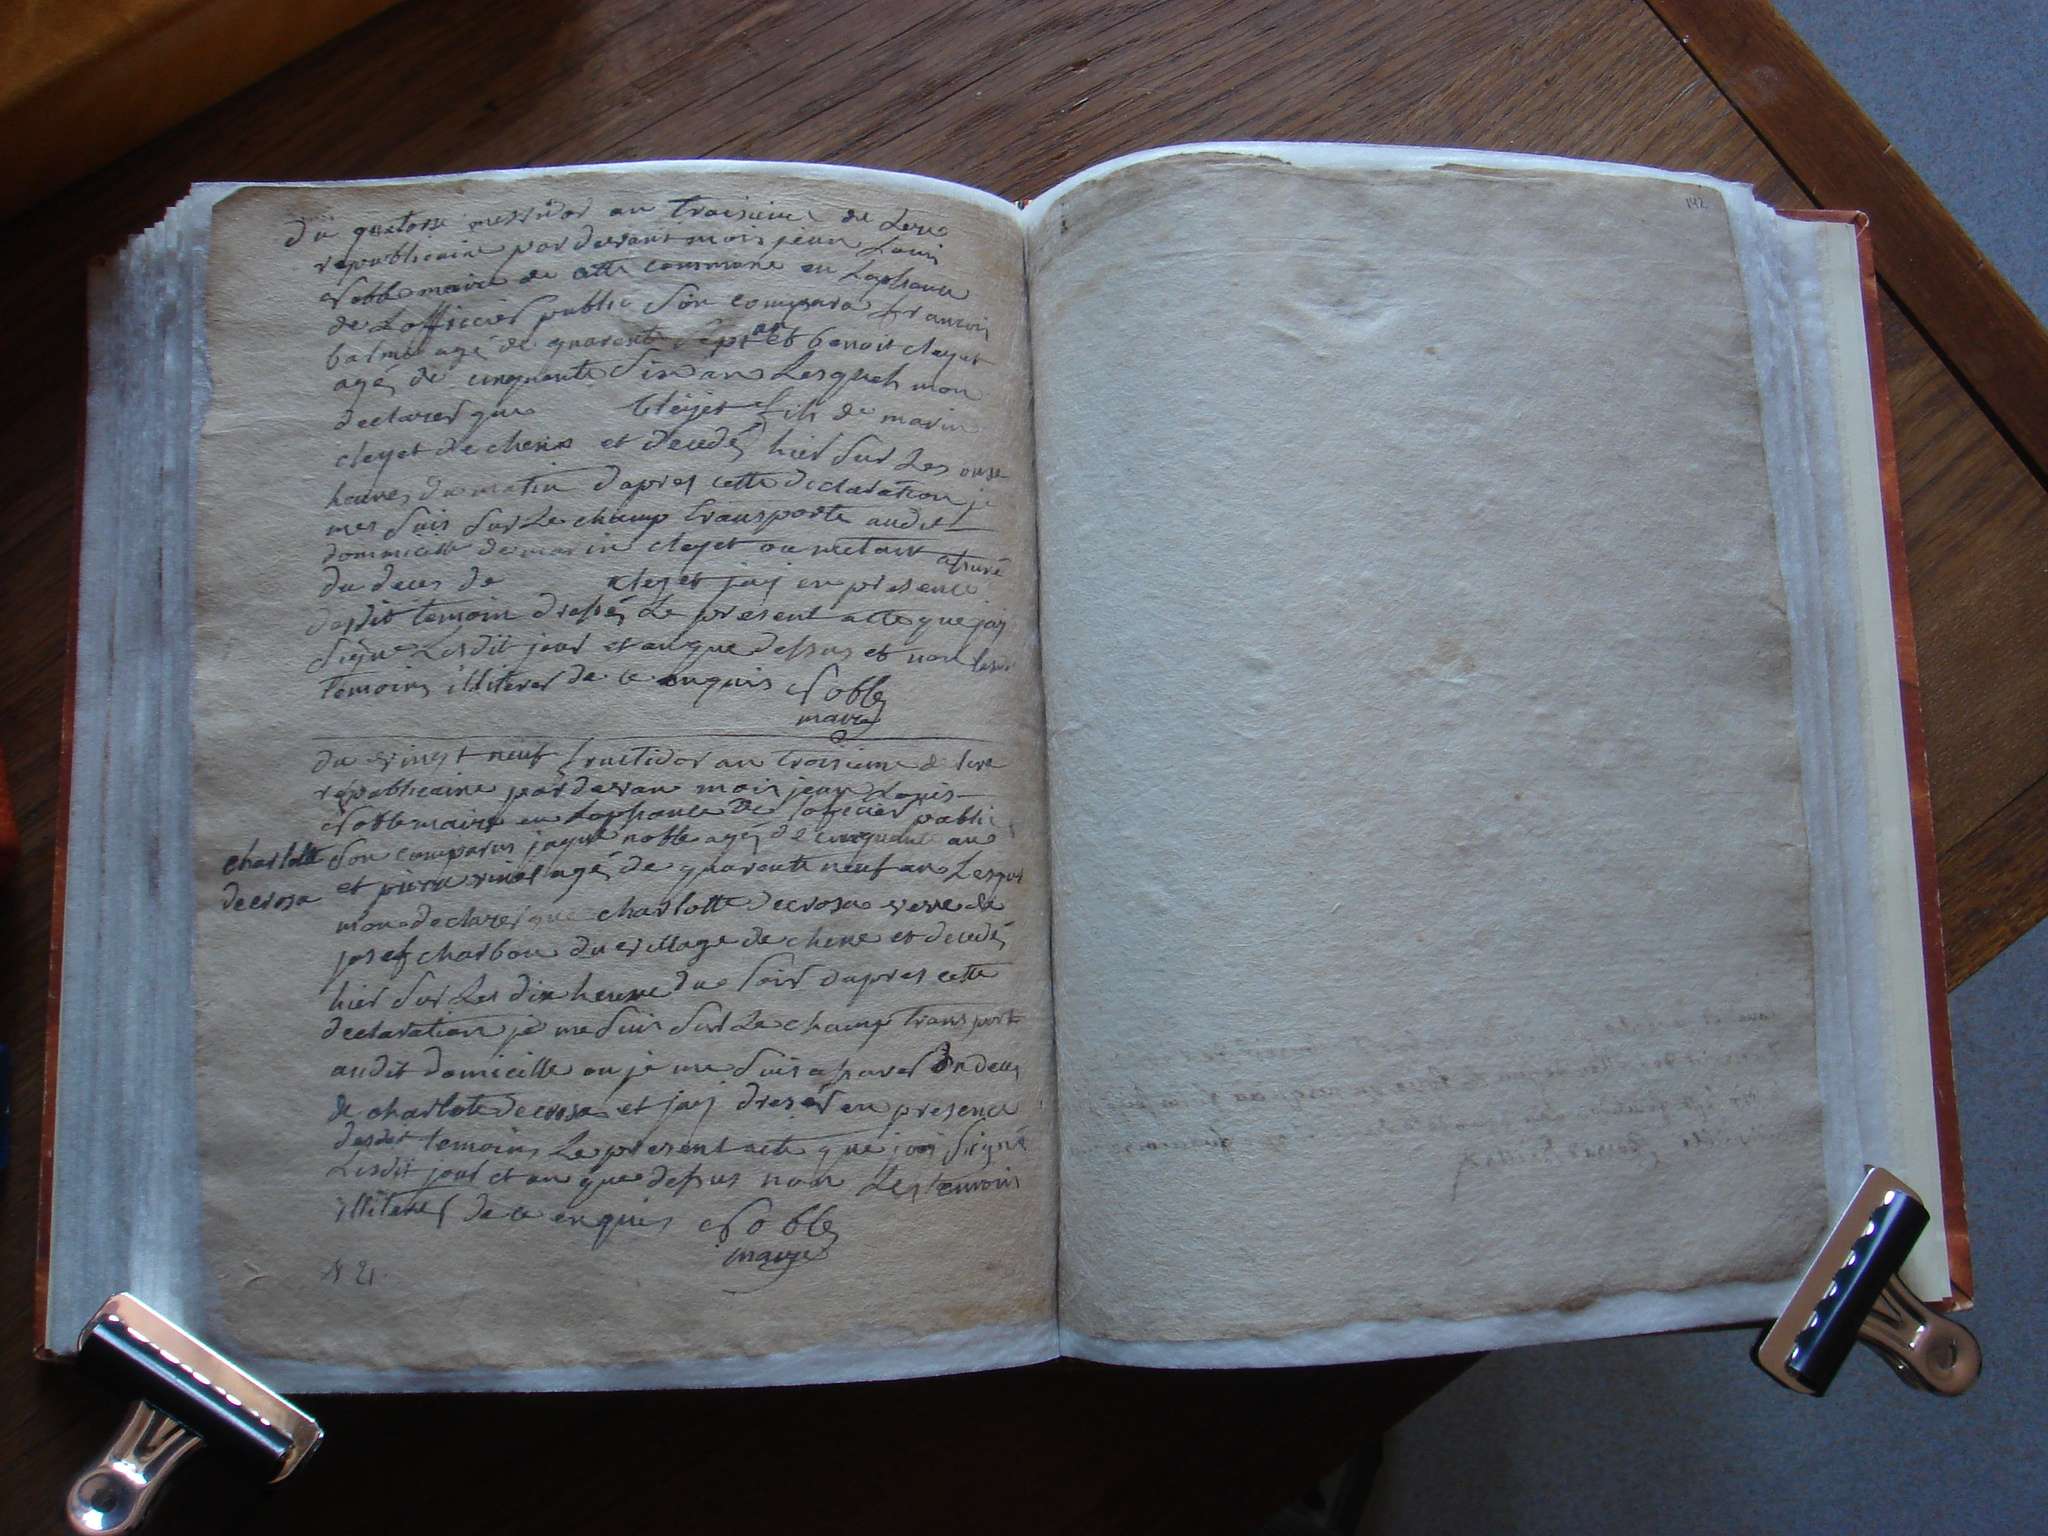 du quatosse messidor an troisieme de Lere
republicaine par devant mois jean Louis
Noble maire de cette commune en Laphance
de Lofficier public Son compara francois
balme agé de quarente Sept an et benoit cleyet
agé de cinquante Six an Lesquels mon
declarer que cleyet fils de marin
cleyet de chene et decedé hier Sur Les onse
heures du matin dapres cette declaration je
mes Suis Sur Le champ transporte audit
dommicille de marin cleyet ou metant asuré
du deces de cleyet jaj en presence
desdit temoin dressé Le present acte que jaj
Signe Lesdit jour et an que dessus et non lesdi
temoins illiterer de ce enquis Noble
maire
du vingt neuf fructidor an troisieme de lere
republicaine par devan mois jean Louis
Noble maire en Laphance de lofficier public
charlotte
decrosa
Son comparus jaque noble agé de cinquante an
et pierre agé de quarente neuf an Lesque
mon declarer que charlotte decrosa veve de
josef charbon du village de chene et decedé
hier Sur Les dix heure du Soir dapres cette
declaration je me Suis Sur Le champ transport
audit domicille ou je me Suis asurer du deces
de charlote decrosa et jaj dreser en presence
desdit temoins Le present acte que jaj Signé
Lesdit jour et an que dessus non Les temoins
illiterer de ce enquis Noble
maire
N 21
142